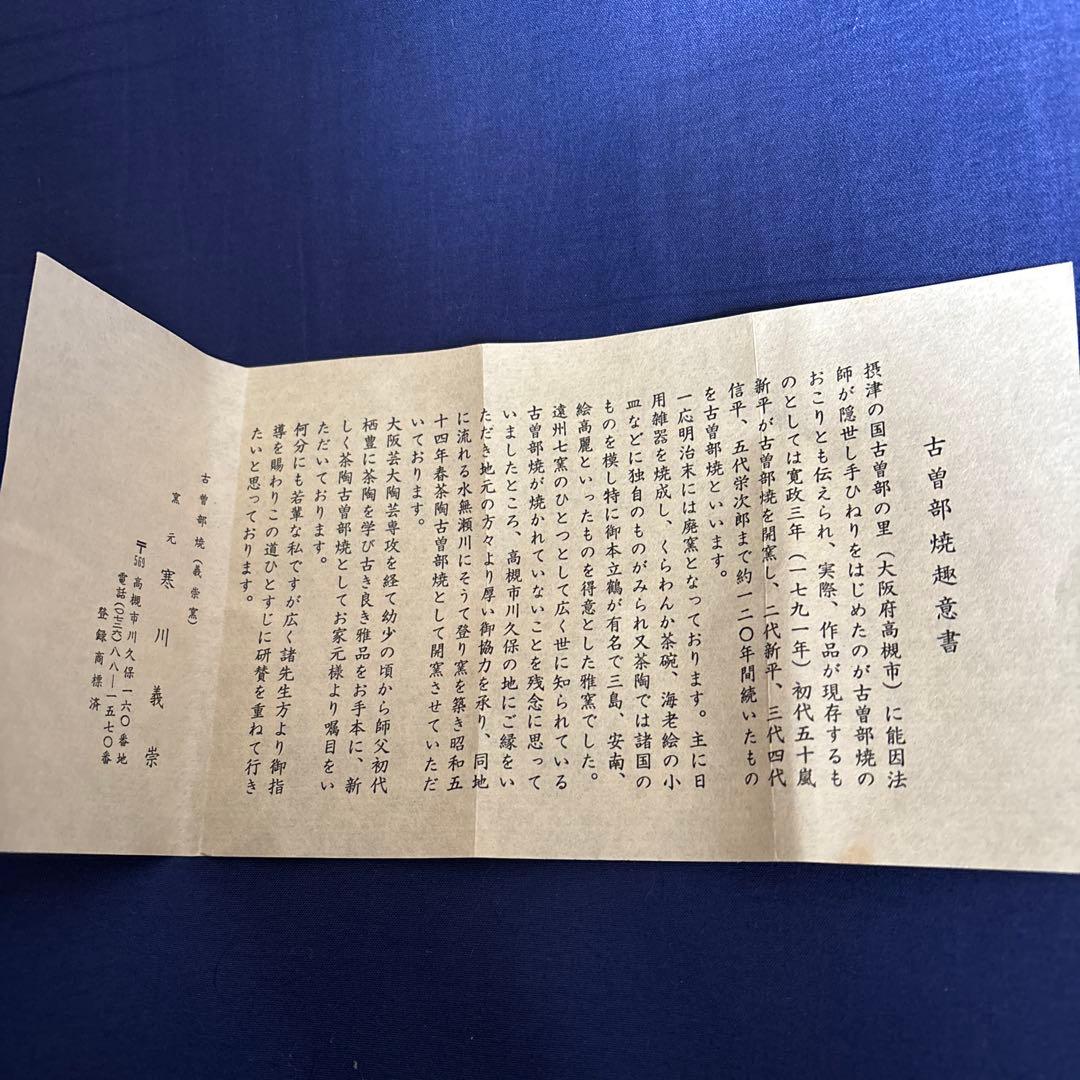 古曽部焼趣意書
摂津の国古曽部の里（大阪府高槻市）に能因法
師が隠世し手ひねりをはじめたのが古曽部焼の
おこりとも伝えられ、実際、作品が現存するも
のとしては寛政三年（一七九一年）初代五十嵐
新平が古曽部焼を開窯し、二代新平、三代四代
信平、五代栄次郎まで約一二〇年間続いたもの
を古曽部焼といいます。
一応明治末には廃窯となっております。主に日
用雑器を焼成し、くらわんか茶碗、海老絵の小
皿などに独自のものがみられ又茶陶では諸国の
ものを模し特に御本立鶴が有名で三島、安南、
絵高麗といったものを得意とした雅窯でした。
遠州七窯のひとつとして広く世に知られている
古曽部焼が焼かれていないことを残念に思って
いましたところ、高槻市川久保の地にご縁をい
ただき地元の方々より厚い御協力を承り、同地
に流れる水無瀬川にそうて登り窯を築き昭和五
十四年春茶陶古曽部焼として開窯させていただ
いております。
大阪芸大陶芸専攻を経て幼少の頃から師父初代
栖豊に茶陶を学び古き良き雅品をお手本に、新
しく茶陶古曽部焼としてお家元様より嘱目をい
ただいております。
何分にも若輩な私ですが広く諸先生方より御指
導を賜わりこの道ひとすじに研賛を重ねて行き
たいと思っております。
古曽部焼（義崇窯）
窯元 寒川義崇
〒569 高槻市川久保一六〇番地
電話(〇七二六)八八―一五七〇番
登録商標済